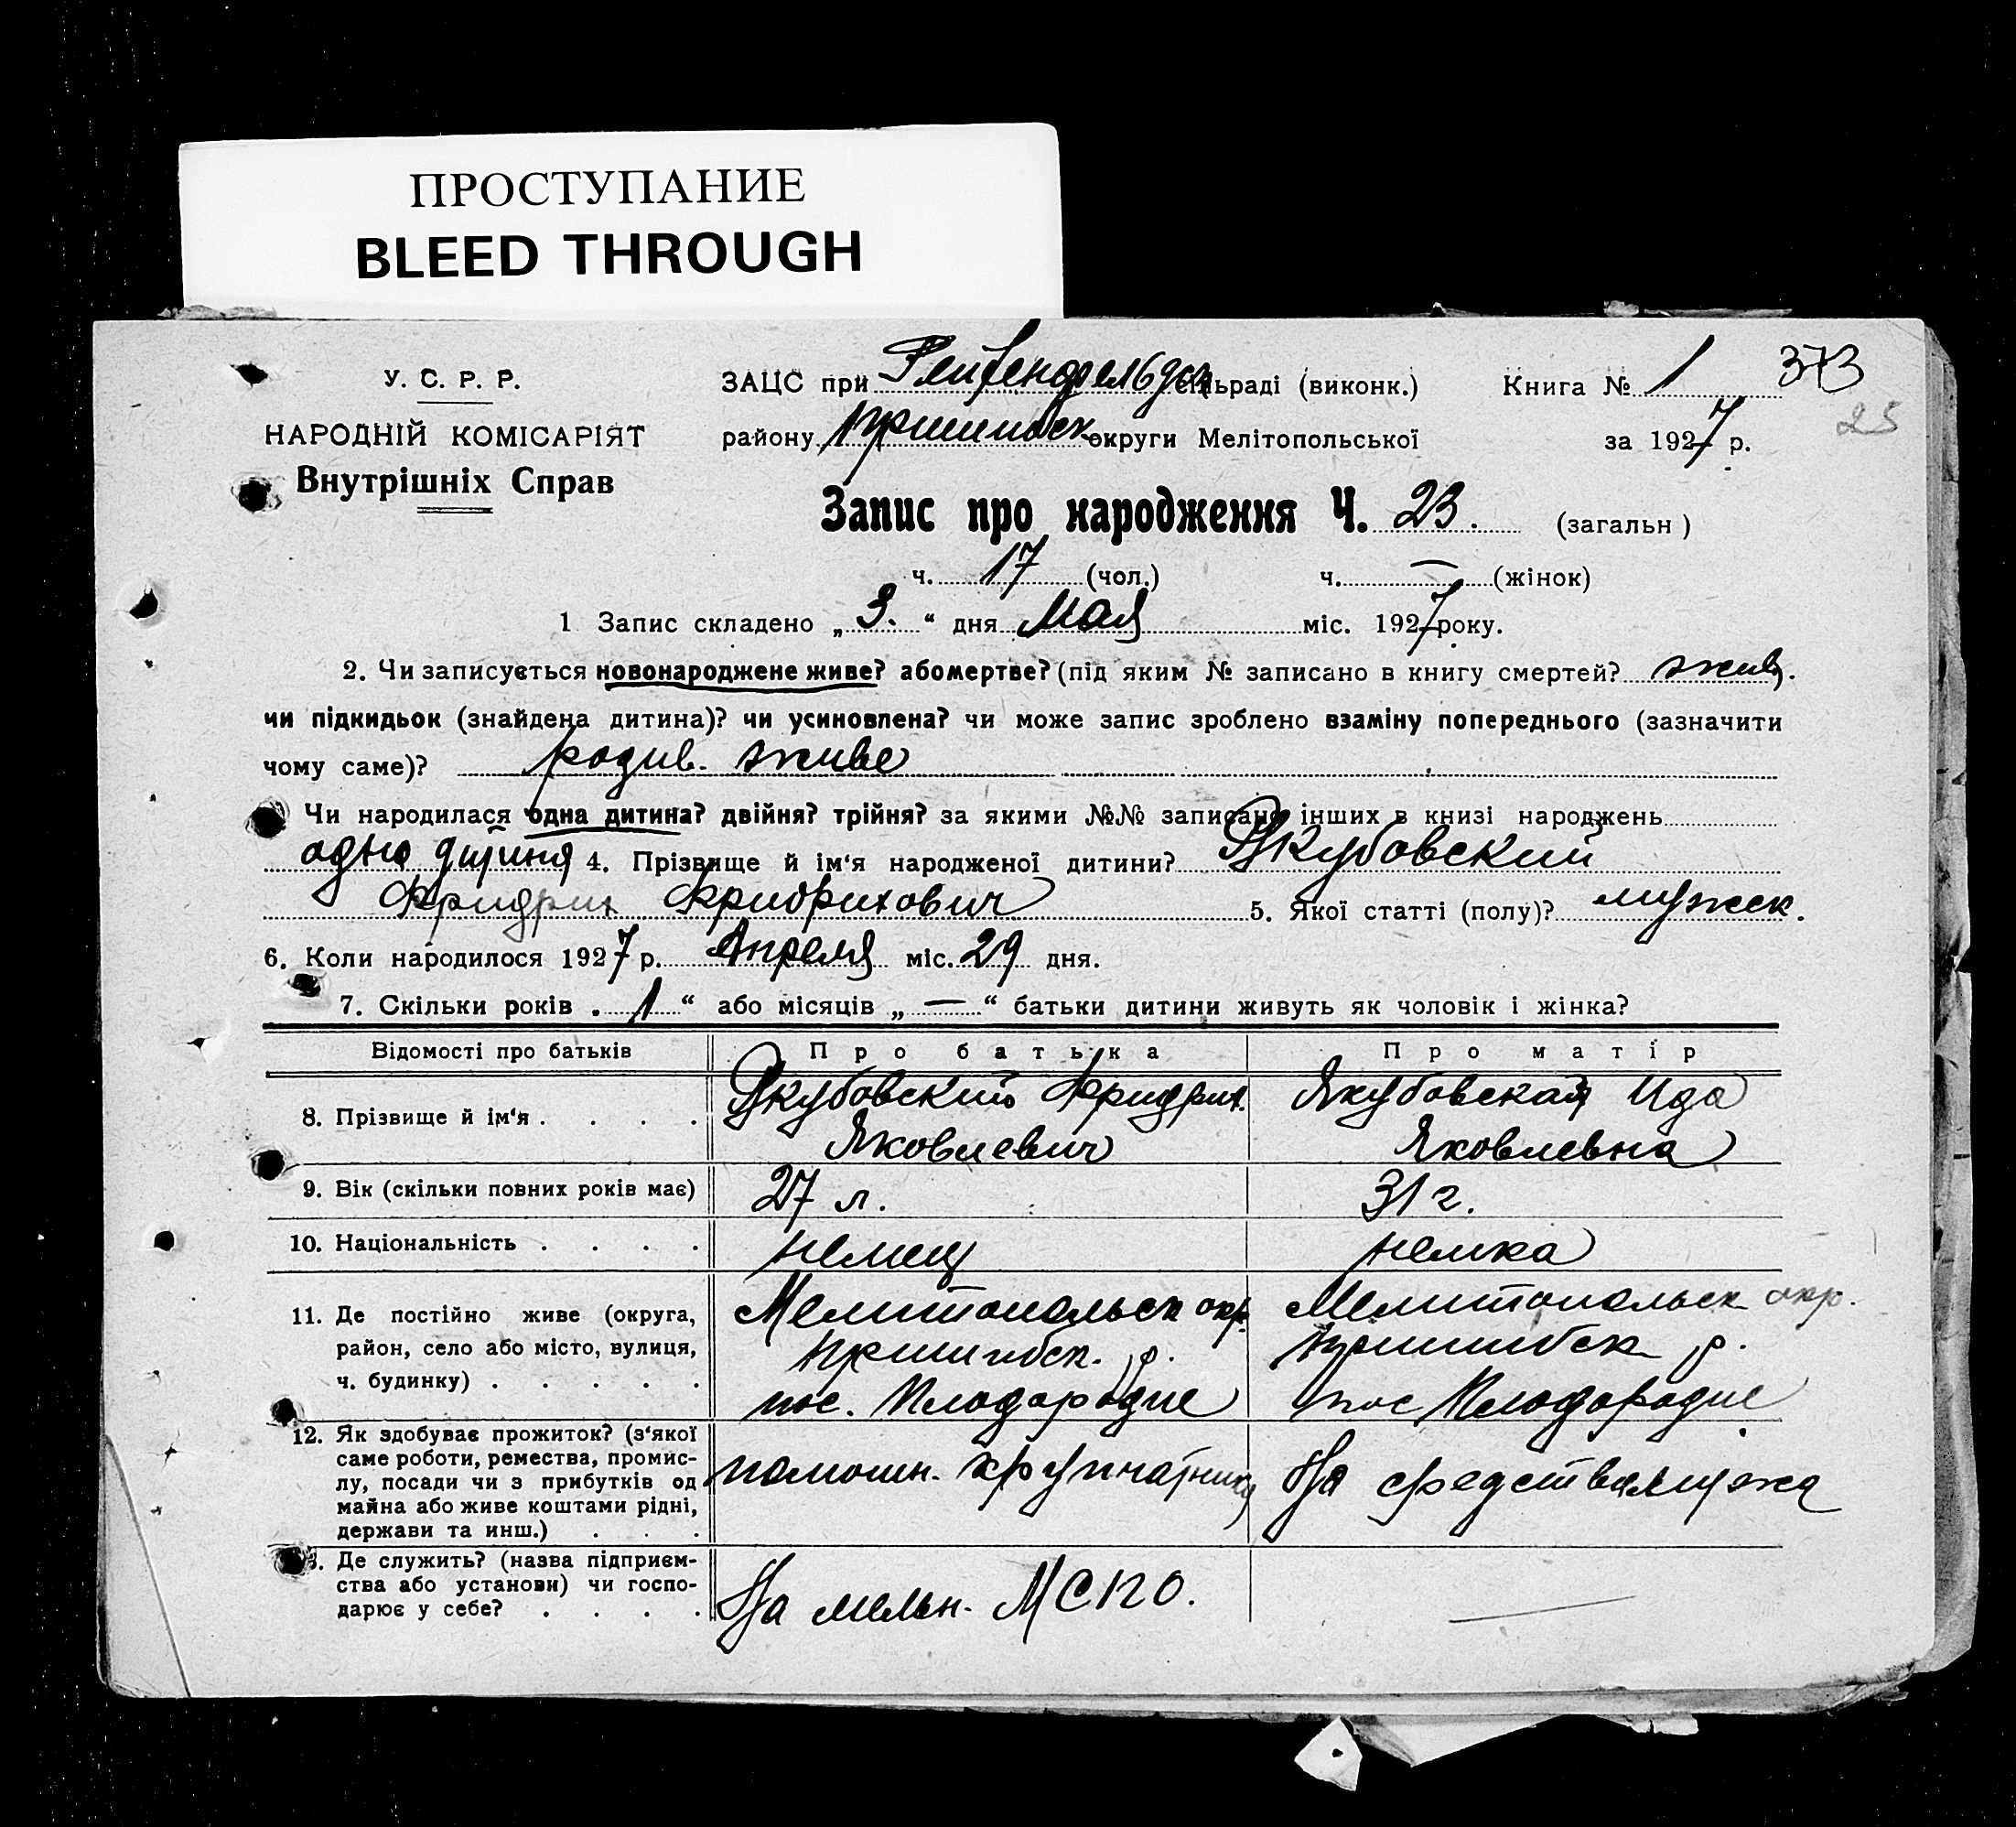 ПРОСТУПАНИЕ
BLEED THROUGH
У. С. Р. Р.
НАРОДНІЙ КОМІСАРІЯТ
Внутрішніх Справ
ЗАЦС при Рейхенфельдск сільраді (виконк.) Книга № 1 373
району Пришибск округи Мелітопольської за 1927 р. 25
Запис про народження Ч. 23. (загальн)
ч. 17 (чол.) ч. — (жінок)
1 Запис складено „ 3. “ дня Мая міс. 1927 року.
2. Чи записується новонароджене живе? або мертве? (під яким № записано в книгу смертей? жив.
чи підкидьок (знайдена дитина)? чи усиновлена? чи може запис зроблено взаміну попереднього (зазначити
чому саме)? родив. живе
Чи народилася одна дитина? двійня? трійня? за якими №№ записано інших в книзі народжень
одна 4. Прізвище й ім‘я народженої дитини? Якубовский
Фридрих Фридрихович 5. Якої статті (полу)? мужск.
6. Коли народилося 1927 р. Апреля міс. 29 дня.
7. Скільки років „ 1 “ або місяців „ — “ батьки дитини живуть як чоловік і жінка?
Відомості про батьків Про батька Про матір
8. Прізвище й ім‘я . . . . Якубовский Фридрих. Якубовская Ида
Яковлевич Яковлевна
9. Вік (скільки повних років має) 27 л. 31 г.
10. Національність . . . . немец немка
11. Де постійно живе (округа, Мелитопольск окр. Мелитопольск окр.
район, село або місто, вулиця, Пришибск. р. Пришибск р.
ч. будинку) . . . . . пос. Плодородие пос Плодородие
12. Як здобуває прожиток? (з‘якої
саме роботи, ремества, промис-
лу, посади чи з прибутків од помошн. крупчатника На средства мужа
майна або живе коштами рідні,
держави та инш.) . . .
3. Де служить? (назва підприєм-
ства або установи) чи госпо- На мельн. МСПО. —
дарює у себе? . . . .